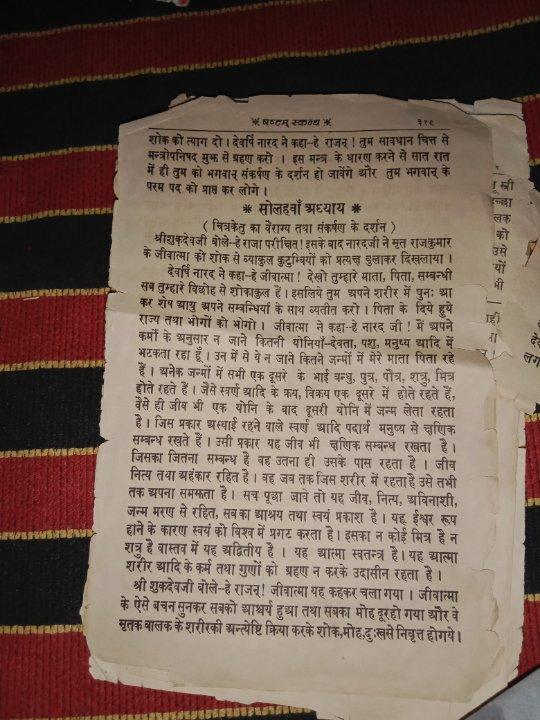 * षष्टम् स्कन्ध * ३१९
शोक को त्याग दो। देवर्षि नारद ने कहा-हे राजन्! तुम सावधान चित्त से
मन्त्रोपनिषद मुझ से ग्रहण करो । इस मन्त्र के धारण करने से सात रात
में ही तुम को भगवान् संकर्षण के दर्शन हो जावेंगे और तुम भगवान् के
परम पद को प्राप्त कर लोगे ।
* सोलहवाँ अध्याय *
( चित्रकेतु का वैराग्य तथा संकर्षण के दर्शन )
श्रीशुकदेवजी बोले-हे राजा परीक्षित! इसके बाद नारदजी ने मृत राजकुमार
के जीवात्मा को शोक से व्याकुल कुटुम्बियों को प्रत्यक्ष बुलाकर दिखलाया।
देवर्षि नारद ने कहा-हे जीवात्मा! देखो तुम्हारे माता, पिता, सम्बन्धी
सब तुम्हारे विछोह से शोकाकुल हैं। इसलिये तुम अपने शरीर में पुनः आ
कर शेष आयु अपने सम्बन्धियों के साथ व्यतीत करो । पिता के दिये हुये
राज्य तथा भोगों को भोगो। जीवात्मा ने कहा-हे नारद जी! मैं अपने
कर्मों के अनुसार न जाने कितनी योनियाँ-देवता, पशु, मनुष्य आदि में
भटकता रहा हूँ। उन में से ये न जाने कितने जन्मों में मेरे माता पिता रहे
हैं । अनेक जन्मों में सभी एक दूसरे के भाई बन्धु, पुत्र, पौत्र, शत्रु, मित्र
होते रहते हैं। जैसे स्वर्ण आदि के क्रय, विक्रय एक दूसरे में होते रहते हैं,
वैसे ही जीव भी एक योनि के बाद दूसरी योनि में जन्म लेता रहता
है। जिस प्रकार अस्थाई रहने वाले स्वर्ण आदि पदार्थ मनुष्य से क्षणिक
सम्बन्ध रखते हैं। उसी प्रकार यह जीव भी क्षणिक सम्बन्ध रखता है।
जिसका जितना सम्बन्ध है वह उतना ही उसके पास रहता है । जीव
नित्य तथा अहंकार रहित है। वह जब तक जिस शरीर में रहता है उसे तभी
तक अपना समझता है। सच पूछा जावे तो यह जीव, नित्य, अविनाशी,
जन्म मरण से रहित, सब का आश्रय तथा स्वयं प्रकाश है। यह ईश्वर रूप
होने के कारण स्वयं को विश्व में प्रगट करता है। इसका न कोई मित्र है न
शत्रु है वास्तव में यह अद्वितीय है । यह आत्मा स्वतन्त्र है। यह आत्मा
शरीर आदि के कर्म तथा गुणों को ग्रहण न करके उदासीन रहता है।
श्री शुकदेवजी बोले-हे राजन्! जीवात्मा यह कहकर चला गया। जीवात्मा
के ऐसे वचन सुनकर सबको आश्चर्य हुआ तथा सबका मोह दूर हो गया और वे
मृतक बालक के शरीरकी अन्त्येष्टि क्रिया करके शोक,मोह,दुःखसे निवृत्त होगये।